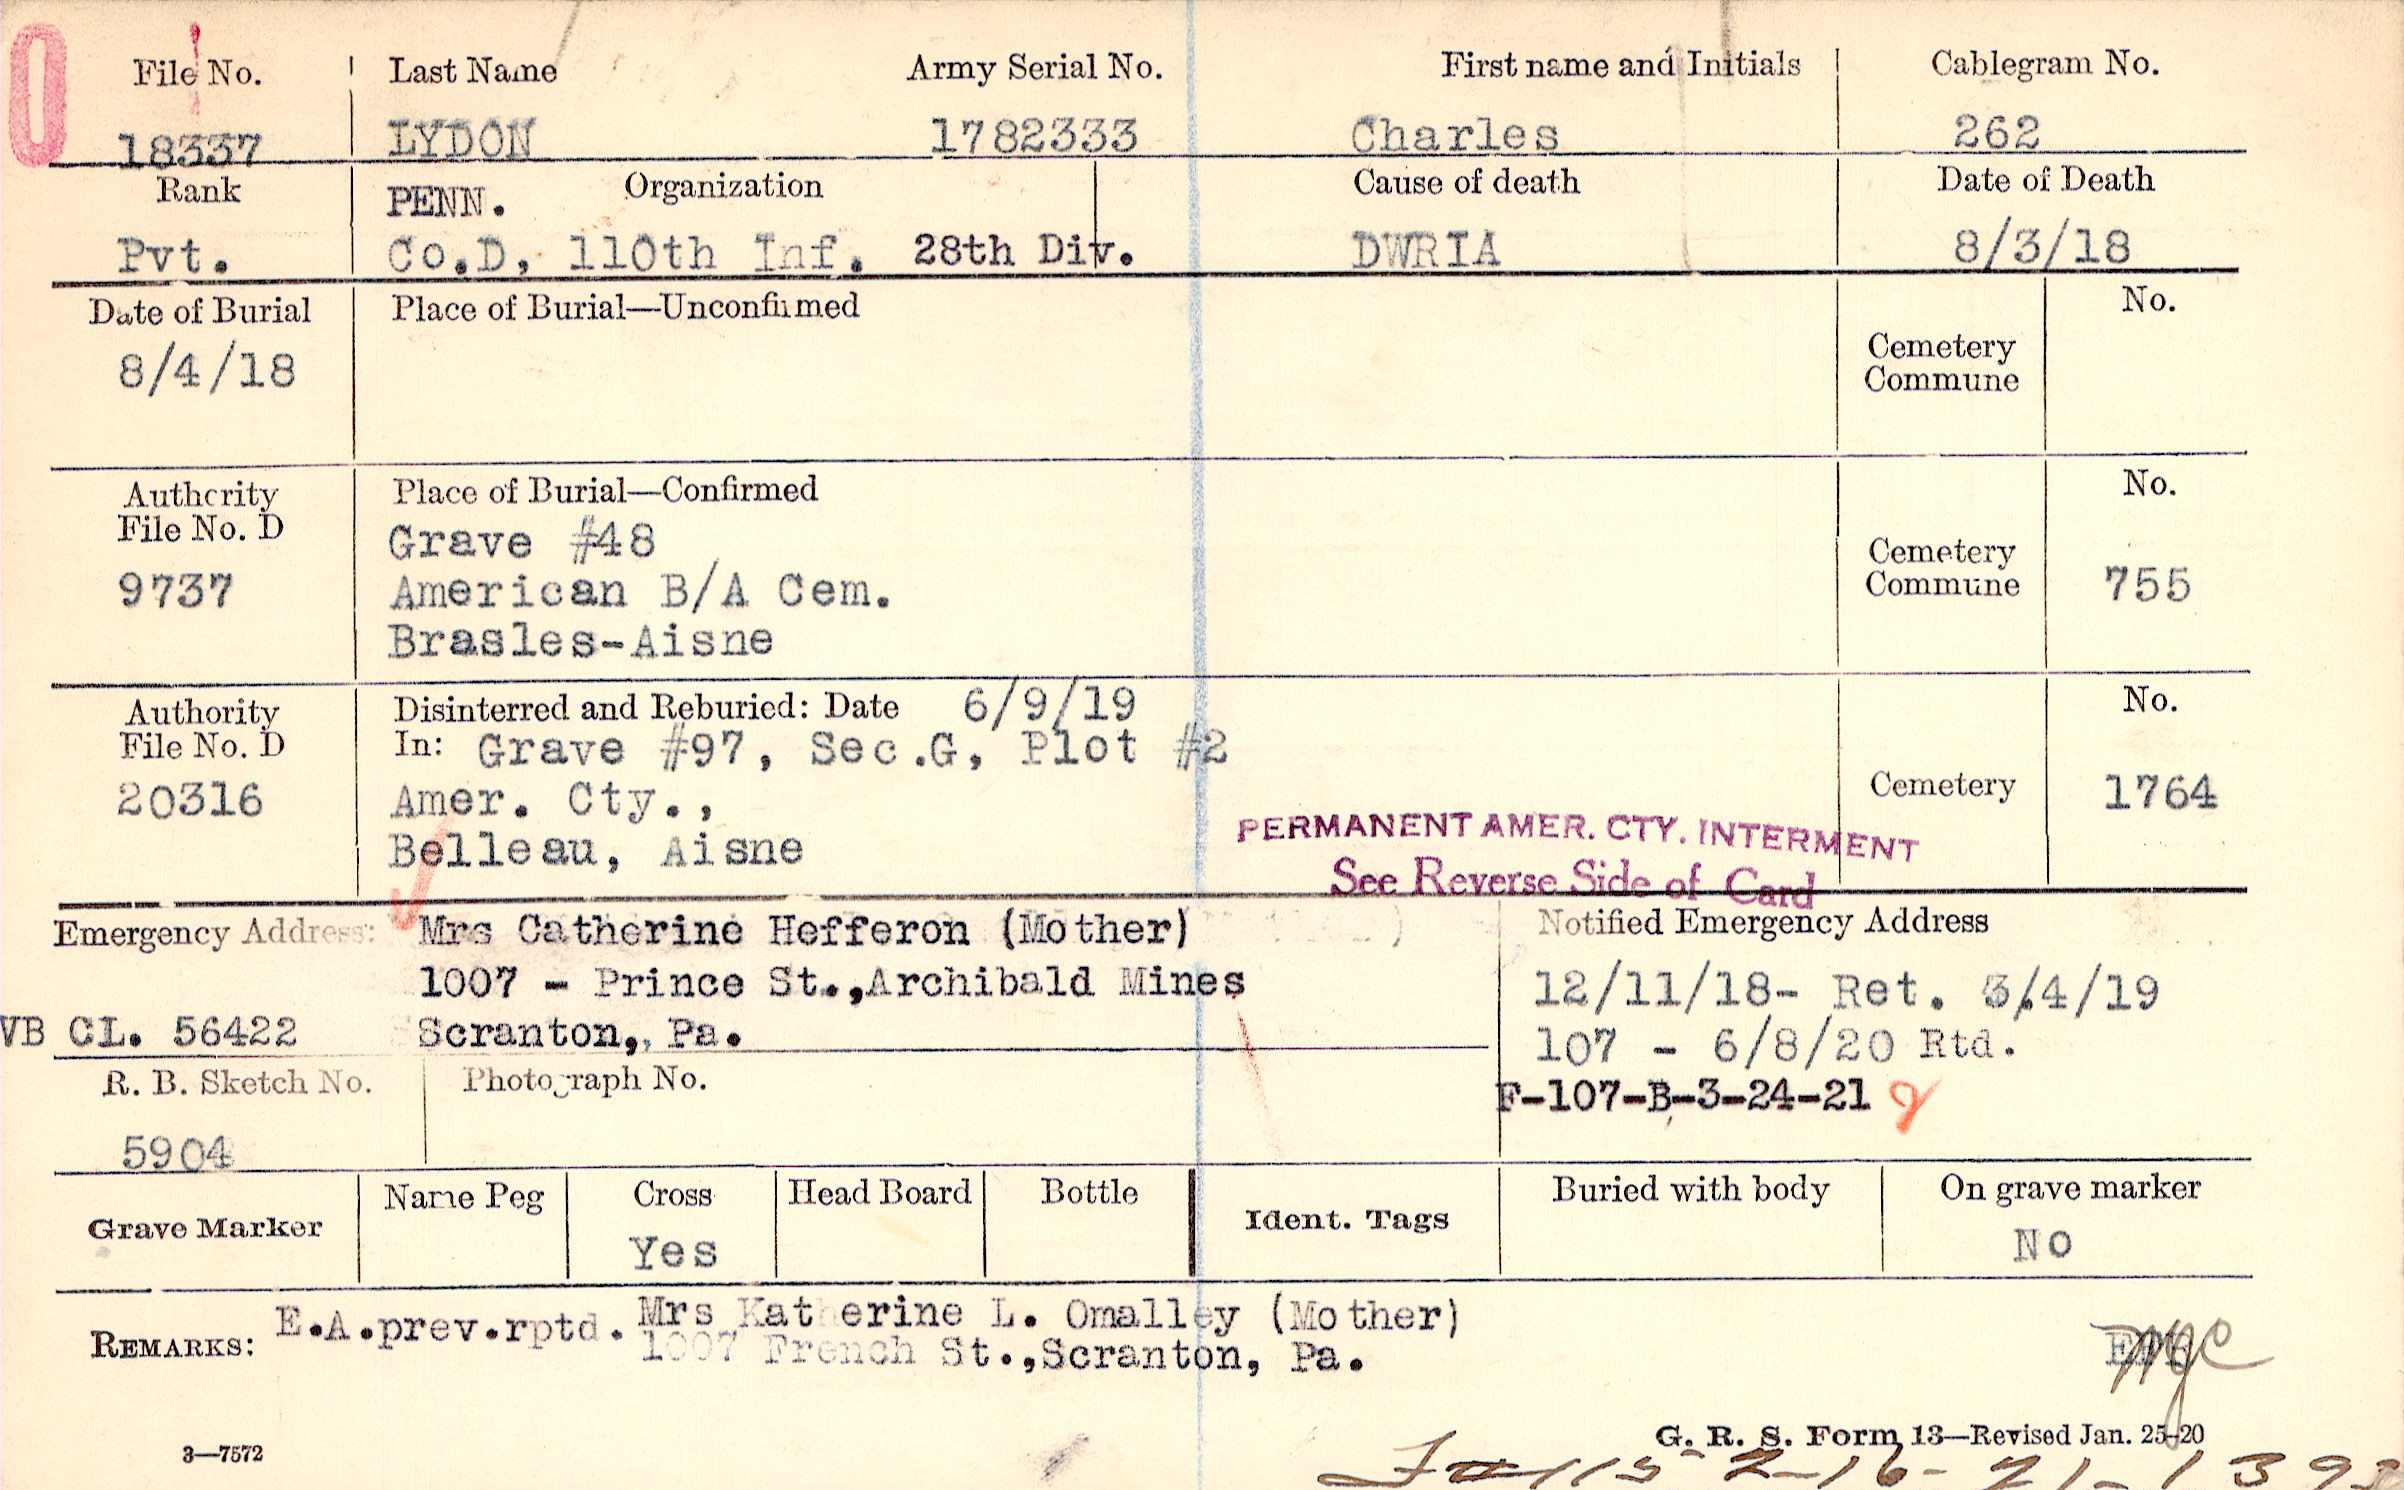 0
File No. Last Name Army Serial No. First name and Initials Cablegram No.
18337 LYDON 1782333 Charles 262
Rank PENN. Organization Cause of death Date of Death
Pvt. Co.D, 110th Inf. 28th Div. DWRIA 8/3/18
Date of Burial Place of Burial—Unconfirmed No.
8/4/18 Cemetery
Commune
Authority Place of Burial—Confirmed No.
File No. D Grave #48
9737 American B/A Cem. Cemetery
Commune 755
Brasles-Aisne
Authority Disinterred and Reburied: Date 6/9/19 No.
File No. D In: Grave #97, Sec.G, Plot #2
20316 Amer. Cty., Cemetery 1764
Belleau, Aisne PERMANENT AMER. CTY. INTERMENT
See Reverse Side of Card
Emergency Address: Mrs Catherine Hefferon (Mother) Notified Emergency Address
1007 - Prince St.,Archibald Mines 12/11/18- Ret. 3/4/19
VB CL. 56422 Scranton,, Pa. 107 - 6/8/20 Rtd.
R. B. Sketch No. Photograph No. F-107-B-3-24-21
5904
Grave Marker Name Peg Cross Head Board Bottle Ident. Tags Buried with body On grave marker
Yes No
REMARKS: E.A.prev.rptd. Mrs Katherine L. Omalley (Mother)
1007 French St.,Scranton, Pa.
G. R. S. Form 13—Revised Jan. 25-20
3—7572